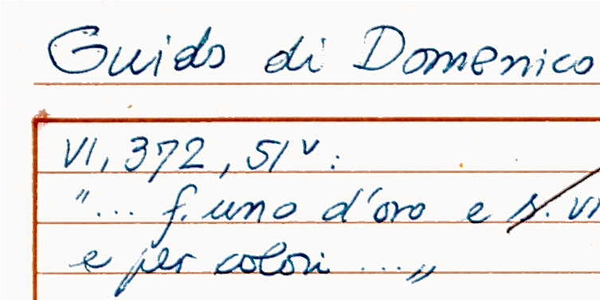 Guido di Domenico
VI, 372, 51v:
"... f. uno d'oro e s. VI
e per colori ..."